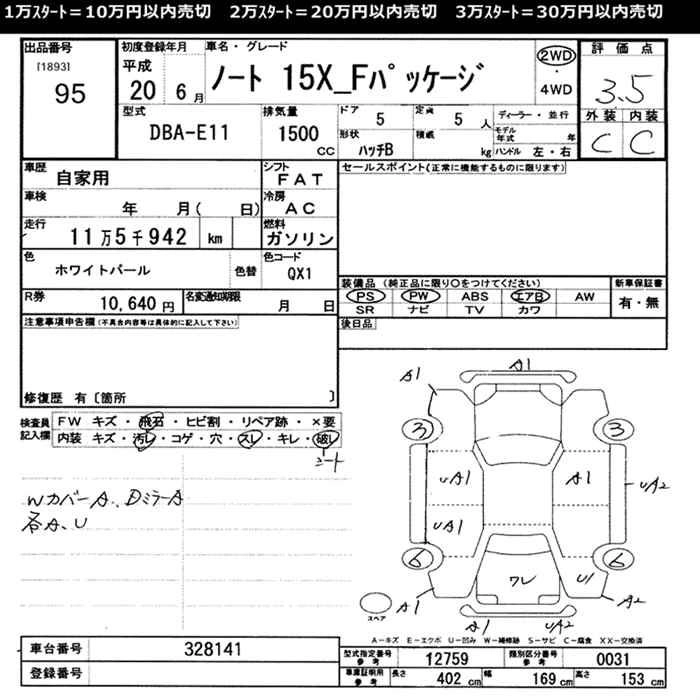 1万ｽﾀｰﾄ＝10万円以内売切　2万ｽﾀｰﾄ＝20万円以内売切　3万ｽﾀｰﾄ＝30万円以内売切
出品番号
[1893]
95
初度登録年月
平成
20 6月
車名・グレード
ノート 15X_Fパッケージ
2WD
・
4WD
評価点
3.5
外装 内装
C C
型式
DBA-E11
排気量
1500
CC
ドア
5
定員
5 人
形状
ハッチB
積載
kg
ディーラー・並行
モデル年式 年
ハンドル 左・右
車歴
自家用
シフト
FAT
車検
年 月( 日)
冷房
AC
走行
11万5千942 km
燃料
ガソリン
色
ホワイトパール
色替
色コード
QX1
R券
10,640 円
名変通知期限
月 日
セールスポイント(正常に機能するものに限ります)
装備品 (純正品に限り○をつけてください)
PS PW ABS エアB AW
SR ナビ TV カワ
新車保証書
有・無
後日品
注意事項申告欄(不具合内容等は具体的に記入して下さい)
修復歴 有〔箇所 〕
検査員
記入欄
FW キズ・飛石・ヒビ割・リペア跡・×要
内装 キズ・汚レ・コゲ・穴・スレ・キレ・破レ
シート
WカバーA、DミラーA
各A、U
A1
A1
3
3
UA1
A1
UA2
UA1
6
6
ワレ
U1
スペア
A1
A2
A1
UA2
A－キズ E－エクボ U－凹み W－補修跡 S－サビ C－腐食 XX－交換済
車台番号
328141
登録番号
型式指定番号
参考
12759
類別区分番号
参考
0031
車庫証明用
参考
長さ
402 cm
幅
169 cm
高さ
153 cm